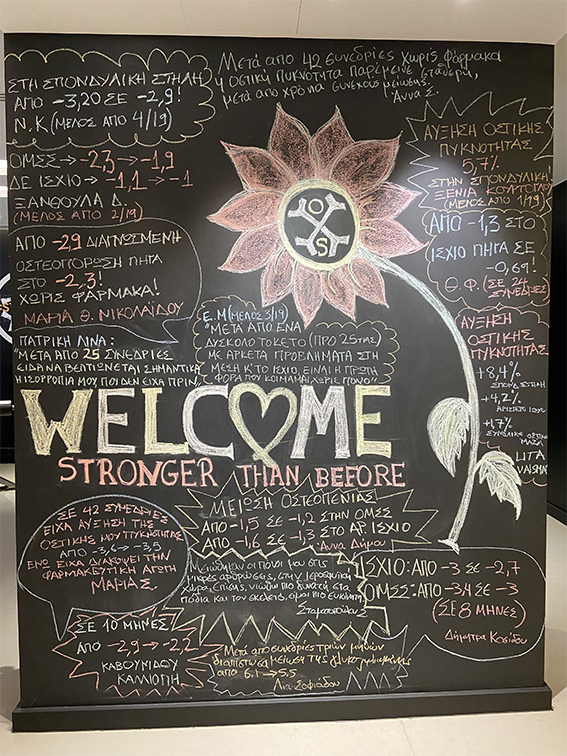 ΣΤΗ ΣΠΟΝΔΥΛΙΚΗ ΣΤΗΛΗ
ΑΠΟ -3,20 ΣΕ -2,9!
Ν.Κ (ΜΕΛΟΣ ΑΠΟ 4/19)
Μετά από 42 συνεδρίες χωρίς φάρμακα
η οστική πυκνότητα παρέμεινε σταθερή,
μετά από χρόνια συνεχούς μείωσης.
Άννα Σ.
ΟΜΣΣ → -2,3 → -1,9
ΔΕ ΙΣΧΙΟ → -1,1 → -1
ΞΑΝΘΟΥΛΑ Δ.
(ΜΕΛΟΣ ΑΠΟ 2/19)
ΑΥΞΗΣΗ ΟΣΤΙΚΗΣ
ΠΥΚΝΟΤΗΤΑΣ
5,7%
ΣΤΗΝ ΣΠΟΝΔΥΛΙΚΗ!
ΞΕΝΙΑ
(ΜΕΛΟΣ ΑΠΟ 1/19)
OS
ΑΠΟ -2,9 ΔΙΑΓΝΩΣΜΕΝΗ
ΟΣΤΕΟΠΟΡΩΣΗ ΠΗΓΑ
ΣΤΟ -2,3!
ΧΩΡΙΣ ΦΑΡΜΑΚΑ!
ΜΑΡΙΑ Θ. ΝΙΚΟΛΑΪΔΟΥ
ΑΠΟ -1,3 ΣΤΟ
ΙΣΧΙΟ ΠΗΓΑ ΣΕ
-0,69!
Θ.Φ. (ΣΕ 24
ΣΥΝΕΔΡΙΕΣ
Ε.Μ (ΜΕΛΟΣ 3/19)
"ΜΕΤΑ ΑΠΟ ΕΝΑ
ΔΥΣΚΟΛΟ ΤΟΚΕΤΟ (ΠΡΟ 25ΤΙΑΣ)
ΜΕ ΑΡΚΕΤΑ ΠΡΟΒΛΗΜΑΤΑ ΣΤΗ
ΜΕΣΗ Κ' ΤΟ ΙΣΧΙΟ, ΕΙΝΑΙ Η ΠΡΩΤΗ
ΦΟΡΑ ΠΟΥ ΚΟΙΜΑΜΑΙ ΧΩΡΙΣ ΠΟΝΟ!"
ΠΑΤΡΙΚΗ ΛΙΝΑ:
"ΜΕΤΑ ΑΠΟ 25 ΣΥΝΕΔΡΙΕΣ
ΕΙΔΑ ΝΑ ΒΕΛΤΙΩΝΕΤΑΙ ΣΗΜΑΝΤΙΚΑ
Η ΙΣΟΡΡΟΠΙΑ ΜΟΥ ΠΟΥ ΔΕΝ ΕΙΧΑ ΠΡΙΝ"
ΑΥΞΗΣΗ
ΟΣΤΙΚΗΣ
ΠΥΚΝΟΤΗΤΑΣ
+8,4%
ΣΠΟΝΔ. ΣΤΗΛΗ
+4,2%
ΑΡΙΣΤΕΡΟ ΙΣΧΙΟ
+1,7%
ΟΣΤΙΚΗ
ΜΑΖΑ
ΛΙΤΣΑ
WELCOME
STRONGER THAN BEFORE
ΣΕ 42 ΣΥΝΕΔΡΙΕΣ
ΕΙΧΑ ΑΥΞΗΣΗ ΤΗΣ
ΟΣΤΙΚΗΣ ΜΟΥ ΠΥΚΝΟΤΗΤΑΣ
ΑΠΟ -3,6 → -3,5
ΕΝΩ ΕΙΧΑ ΔΙΑΚΟΨΕΙ ΤΗΝ
ΦΑΡΜΑΚΕΥΤΙΚΗ ΑΓΩΓΗ
ΜΑΡΙΑ Σ.
ΜΕΙΩΣΗ ΟΣΤΕΟΠΕΝΙΑΣ!
ΑΠΟ -1,5 ΣΕ -1,2 ΣΤΗΝ ΟΜΣΣ
ΑΠΟ -1,6 ΣΕ -1,3 ΣΤΟ ΑΡ ΙΣΧΙΟ
Άννα Δήμου
Μειώθηκαν οι πόνοι μου στις
μικρές αρθρώσεις, στην Ιερολαγόνια
χώρα. Επίσης, νιώθω πιο δυνατή στα
πόδια και του σκελετός, είμαι πιο ευκίνητη
ΙΣΧΙΟ: ΑΠΟ -3 ΣΕ -2,7
ΟΜΣΣ: ΑΠΟ -3,4 ΣΕ -3
(ΣΕ 8 ΜΗΝΕΣ)
Δήμητρα
ΣΕ 10 ΜΗΝΕΣ!
ΑΠΟ -2,9 → -2,2
ΚΑΒΟΥΝΙΔΟΥ
ΚΑΛΛΙΟΠΗ
Μετά από συνεδρίες τριών μηνών
διαπίστωσα μείωση της
από 6,1 → 5,5
Λία Σοφιάδου